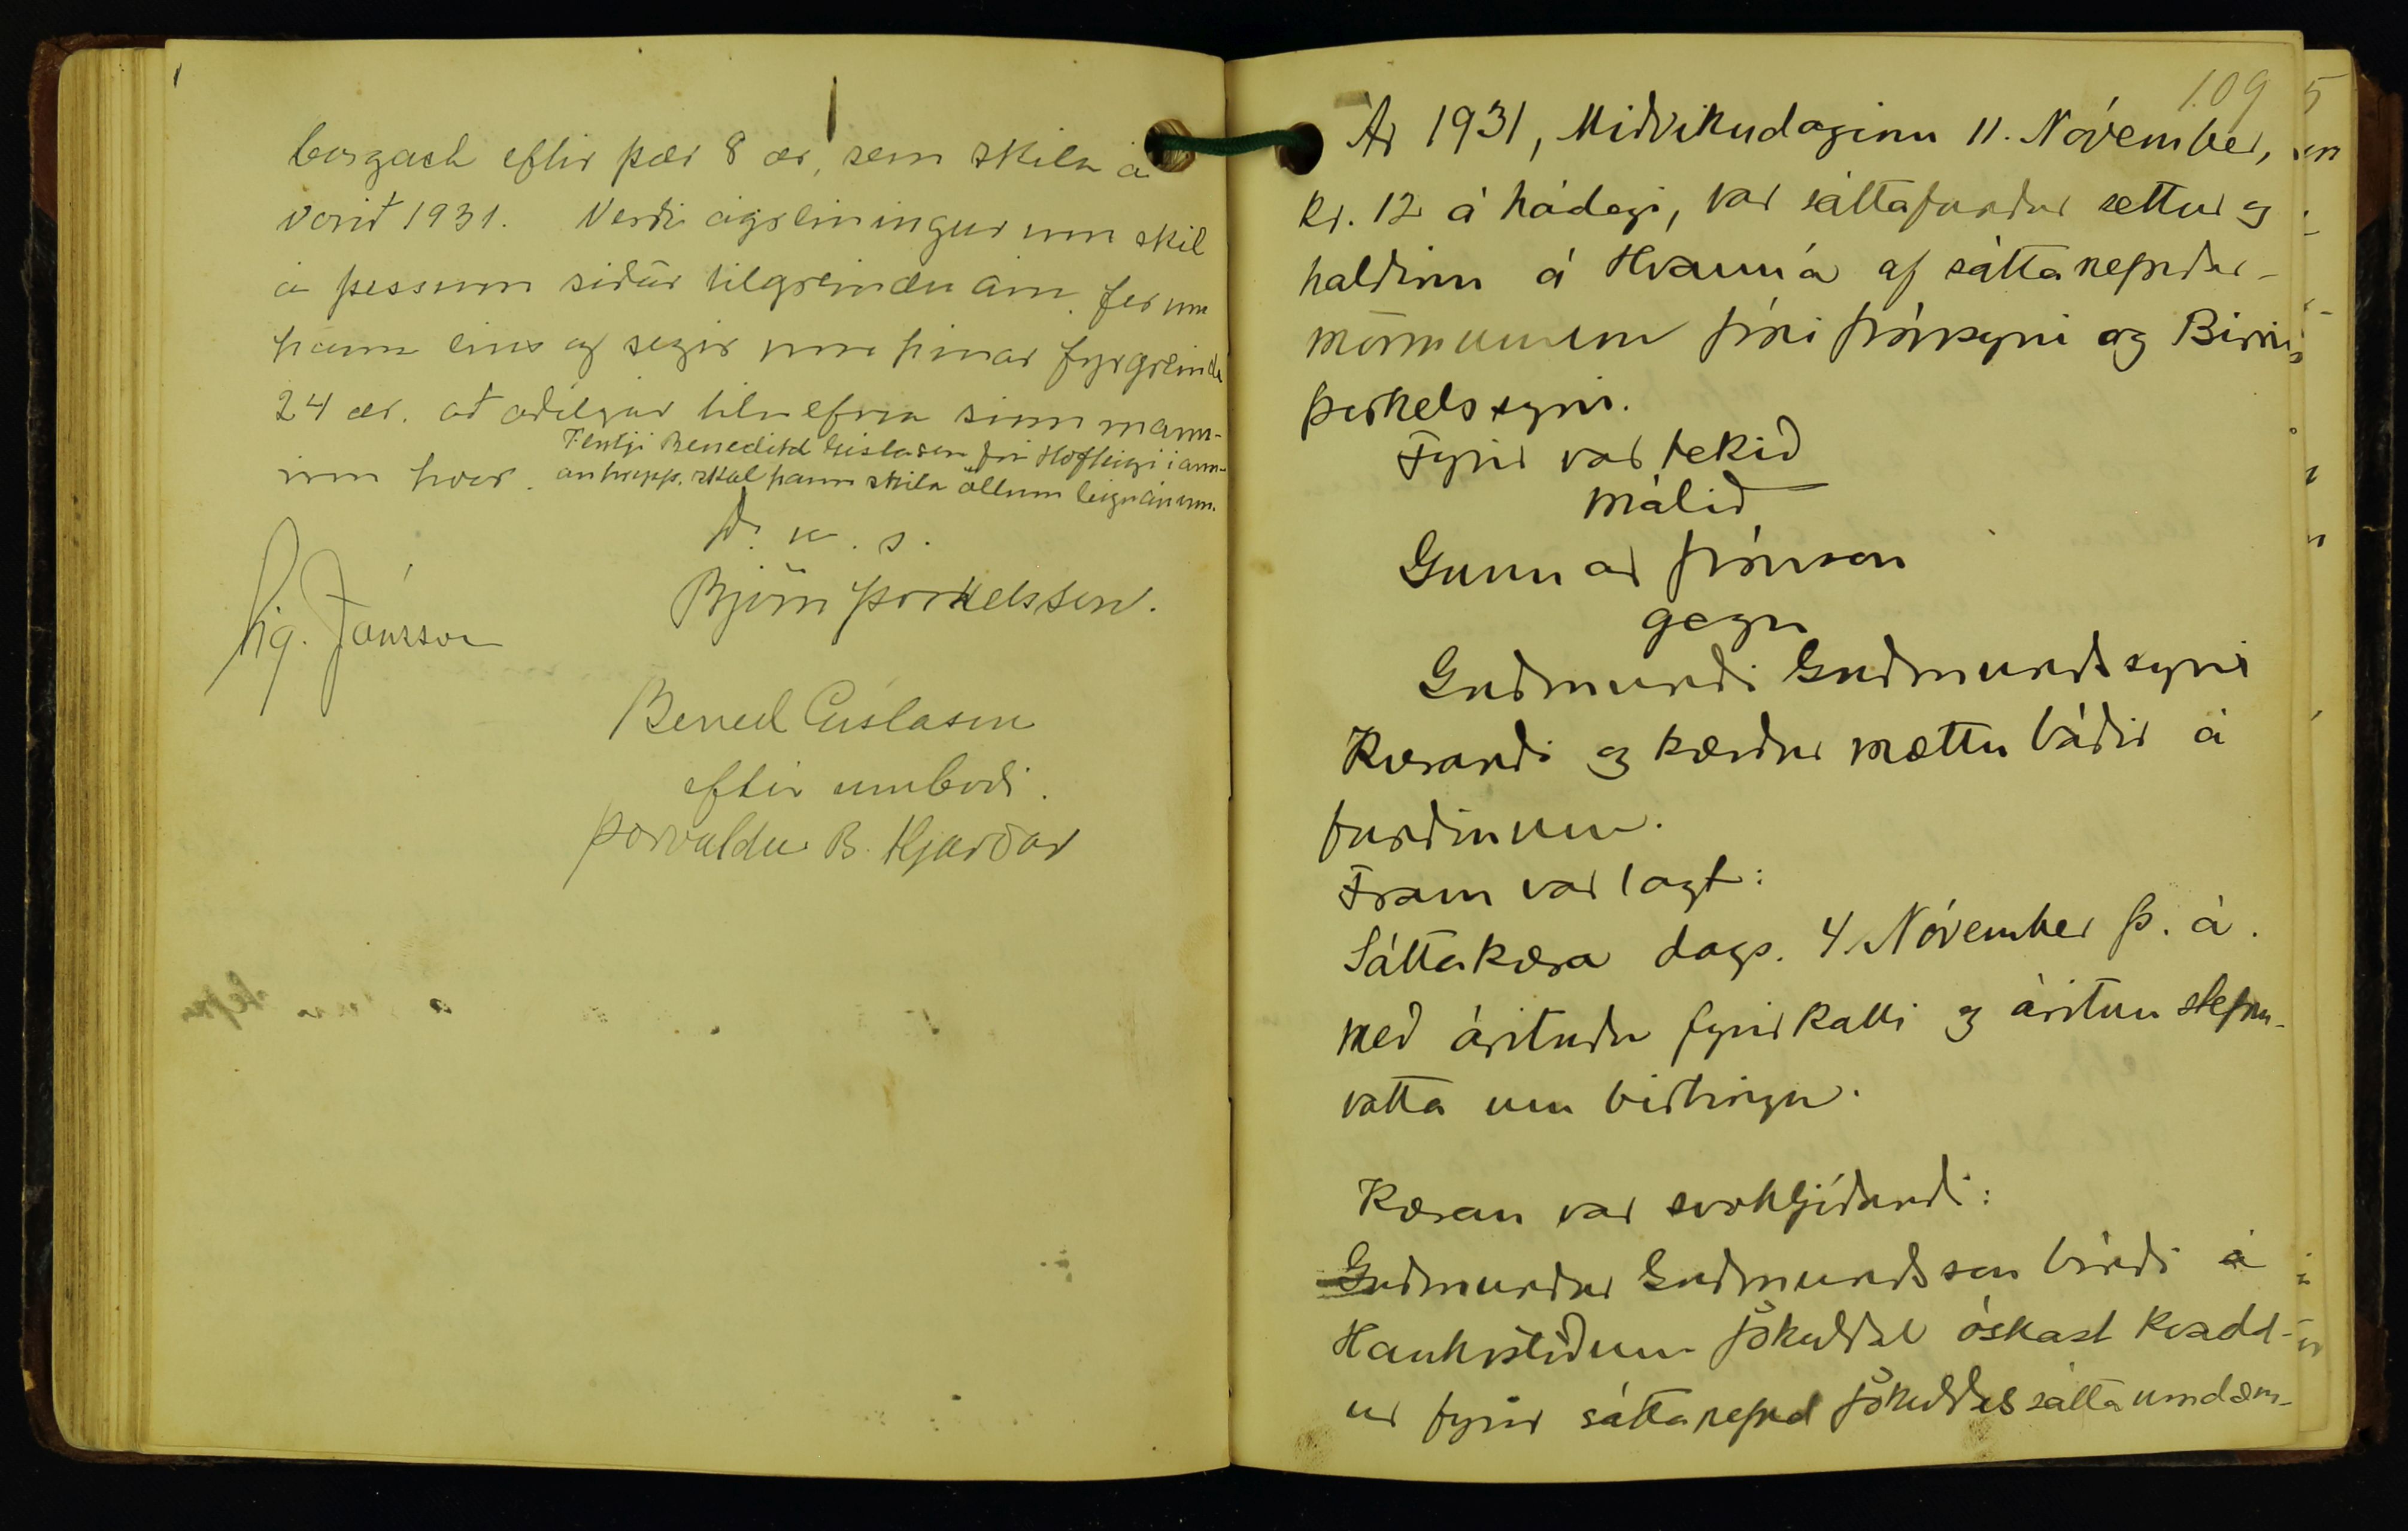 borgast eftir þær 8 ær, sem skila á
vorið 1931. Verði ágreiningur um skil
á þessum síðar tilgreindu ám, fer um
hann eins og segir um hinar fyrgreindu
24 ær. að aðilgar tilnefna sinn mann-
inn hver. Flytji Benedikt Gíslason frá Hofteigi í ann-
an hrepp, skal hann skila öllum leiguánum.
D. u. s.
Björn Þorkelsson.
Sig. Jónsson
Bened Gíslason
eftir umboði.
Þorvaldur B. Kjarðar
109
Ár 1931, Miðvikudaginn 11. Nóvember,
kl. 12 á hádegi, var sáttafundur settur og
haldinn á Hvanná af sáttanefndar-
mönnunum Jóni Jónssyni og Birni
Þorkelssyni.
Fyrir var tekið
málið
Gunnar Jónsson
gegn
Guðmundi Guðmundssyni
Kærandi og kærður mættu báðir á
fundinum.
Fram var lagt:
Sáttakæra dags. 4. Nóvember þ. á.
með árituðu fyrirkalli og áritun stefnu-
votta um birtingu.
Kæran var svohljóðandi:
Guðmundur Guðmundsson bóndi á
Haukstöðum Jökuldal óskast kvadd-
ur fyrir sáttanefnd Jökuldals sáttaumdæm-